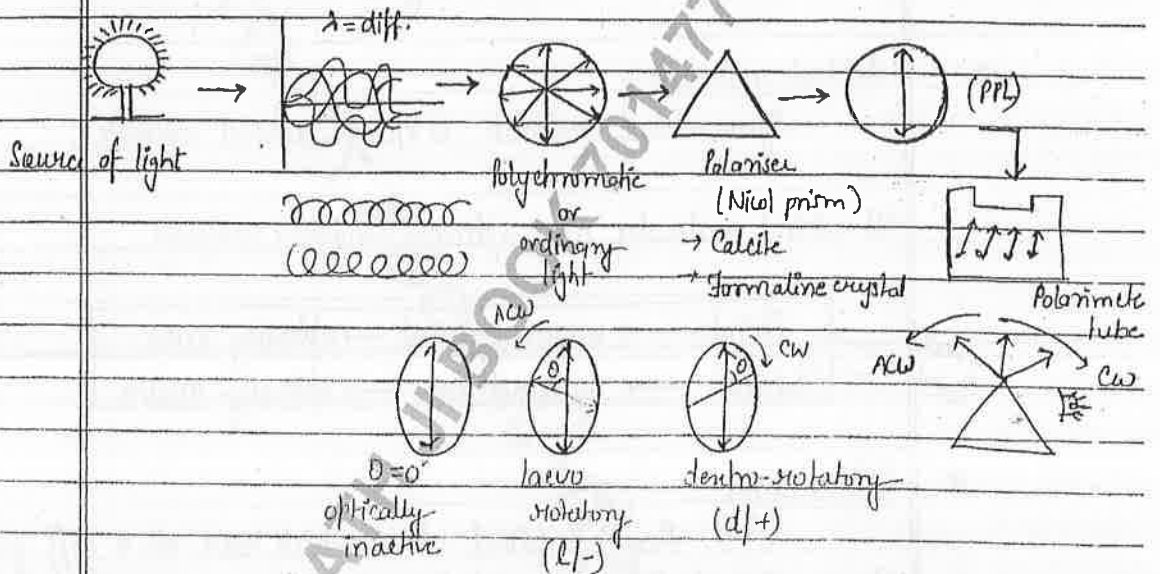 λ = diff.
(PPL)
Source of light
Polychromatic
or
ordinary
light
Polariser
(Nicol prism)
→ Calcite
→ Formaline crystal
Polarimete
tube
ACW
CW
ACW
CW
θ
θ
θ = 0°
optically
inactive
laevo
rotatory
(l/-)
dextro-rotatory
(d/+)
ATP JI BOOK 701477